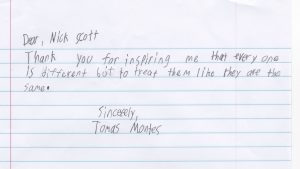 Dear, Nick Scott
Thank you for inspiring me that every one
is different but to treat them like they are the
same.
Sincerely,
Tomas Montes